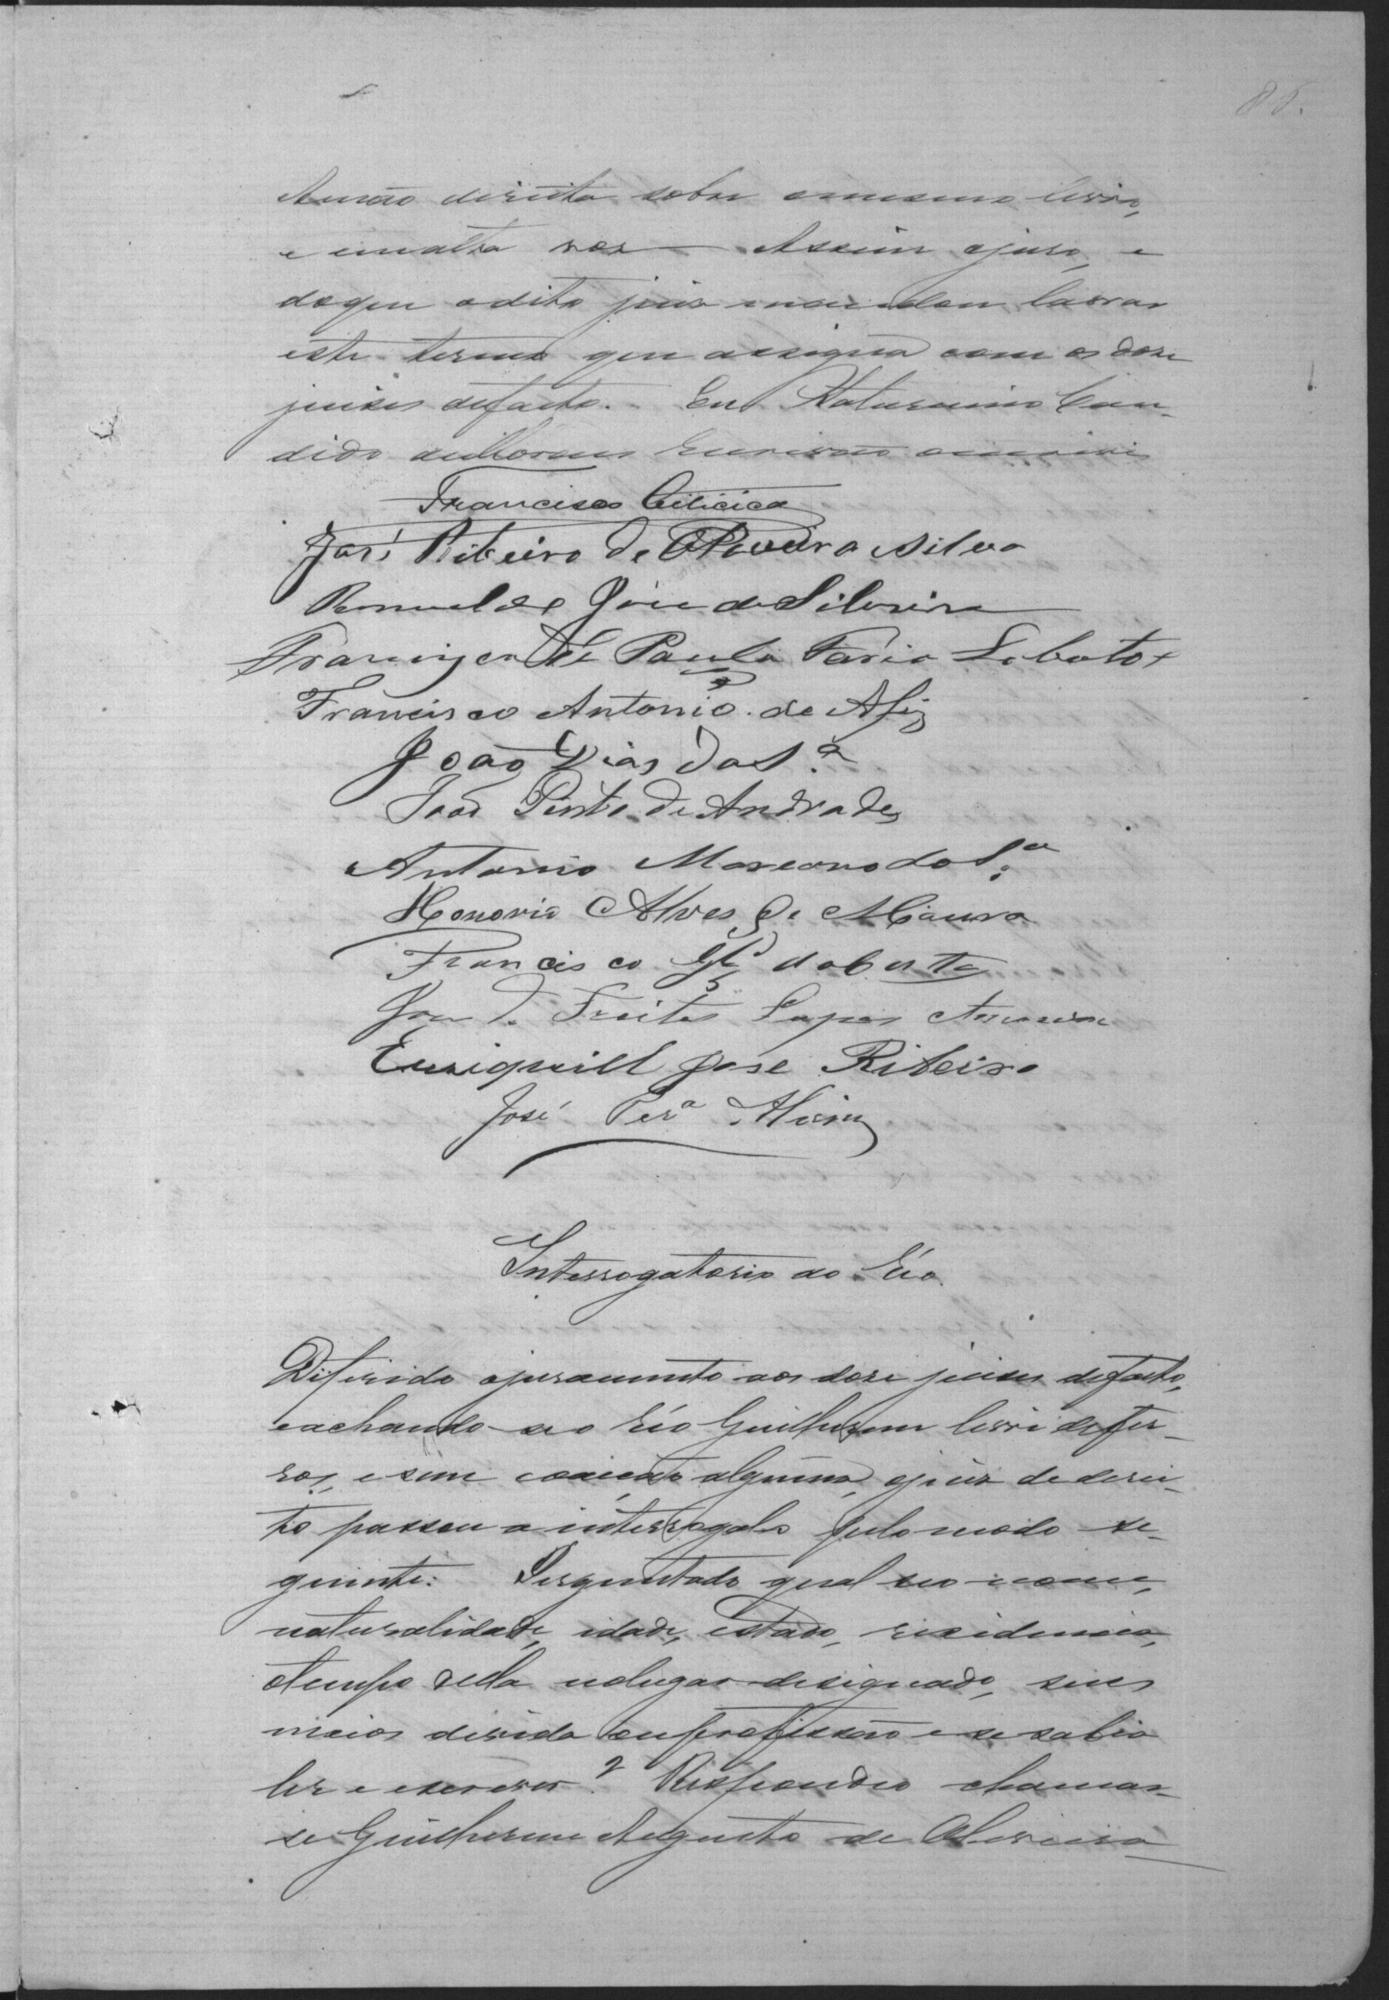 85.
A mão direita sobre o mesmo livro,
e em alta voz — Assim o juro, e
do que o dito juiz mandou lavrar
este termo que assigna com os doze
juizes de facto. Eu Saturnino Can-
dido Escrivão o escrevi
Francisco
José Ribeiro de Oliveira Silva
Romualdo José da Silveira
Francisco de Paula Faria Lobato
Francisco Antonio de Assiz
João Dias da S.ª
João Pinto de Andrade
Antonio Marcano da S.ª
Honorio Alves de Moura
Francisco Glz da Costa
José de Freitas Lopes
Eusiquiel Jose Ribeiro
José Per.ª Alvim
Interrogatorio ao Réo
Diferido o juramento aos doze juizes de facto,
e achando-se o Réo Guilherme livre de fer-
ros, e sem coacção alguma, o juiz de direi-
to passou a interrogalo pelo modo se-
guinte: Perguntado qual seo nome,
naturalidade, idade, estado, residencia,
o tempo della no lugar designado, seus
meios de vida ou profissão e se sabia
ler e escrever? Respondeo chamar-
se Guilherme Augusto de Oliveira